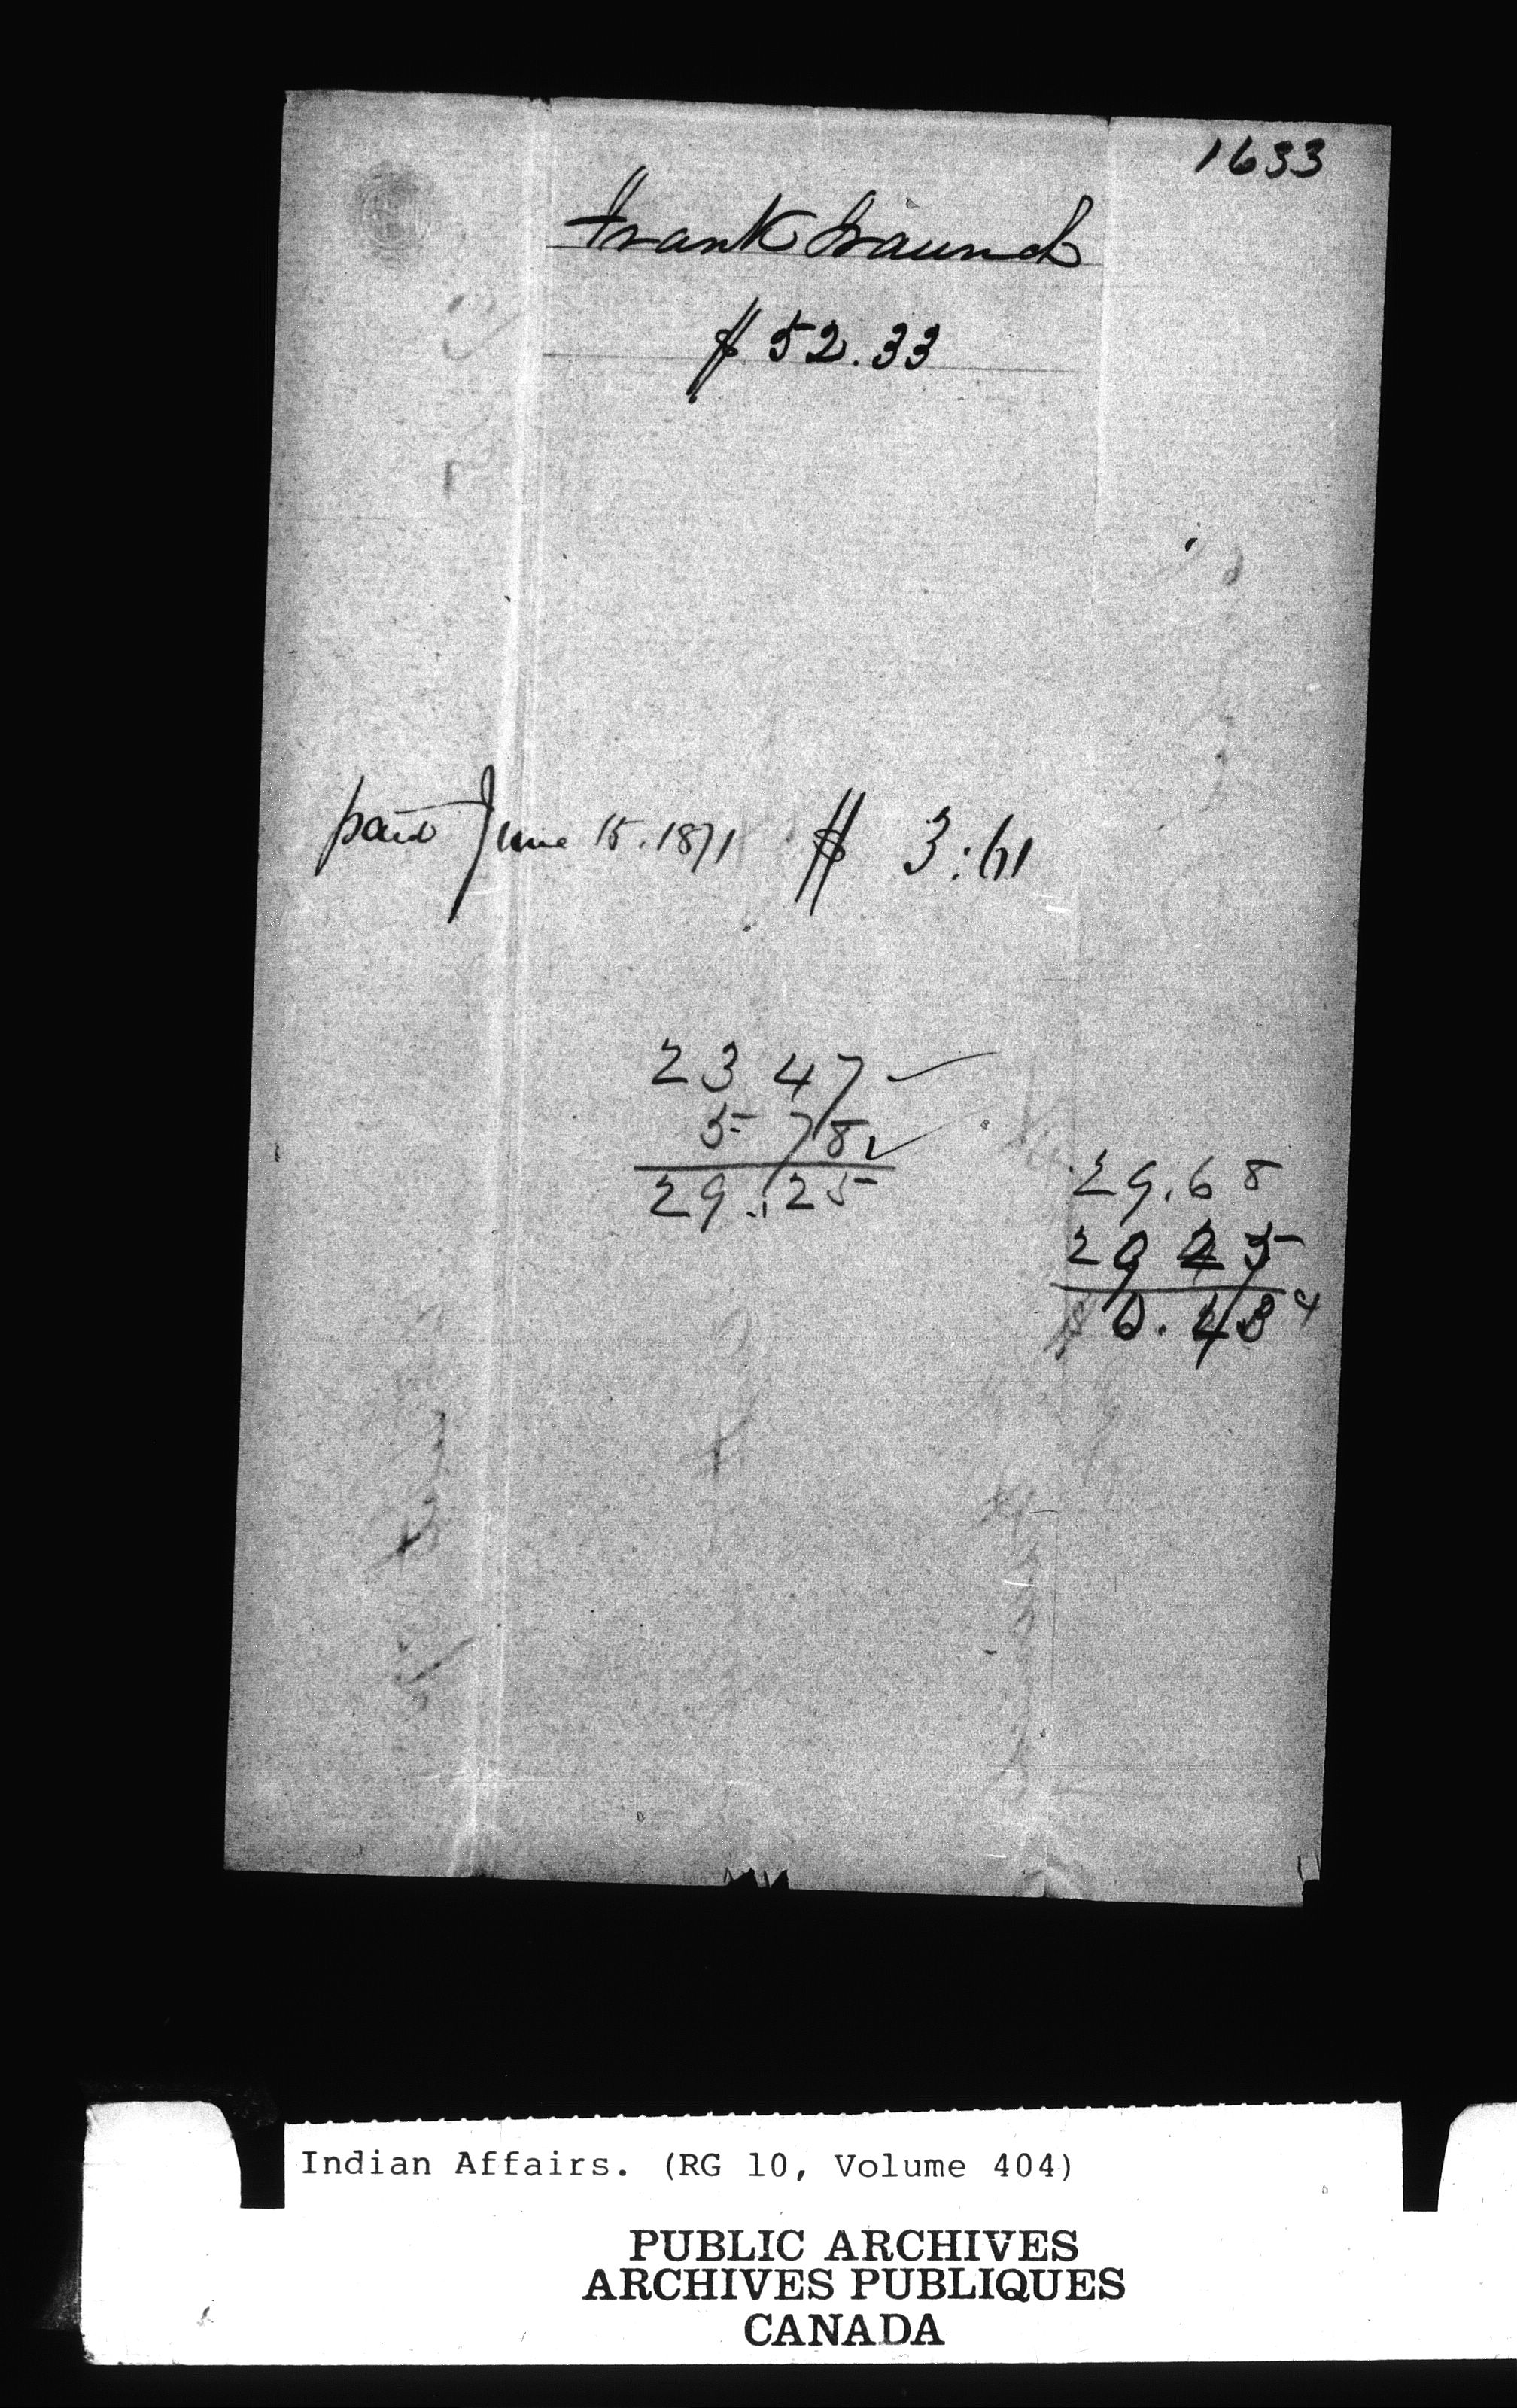 1633
Frank
$ 52.33
paid June 15. 1871 $ 3:61
23 47
5 78
29.25
29.68
29 25
$ 0.43
Indian Affairs. (RG 10, Volume 404)
PUBLIC ARCHIVES
ARCHIVES PUBLIQUES
CANADA